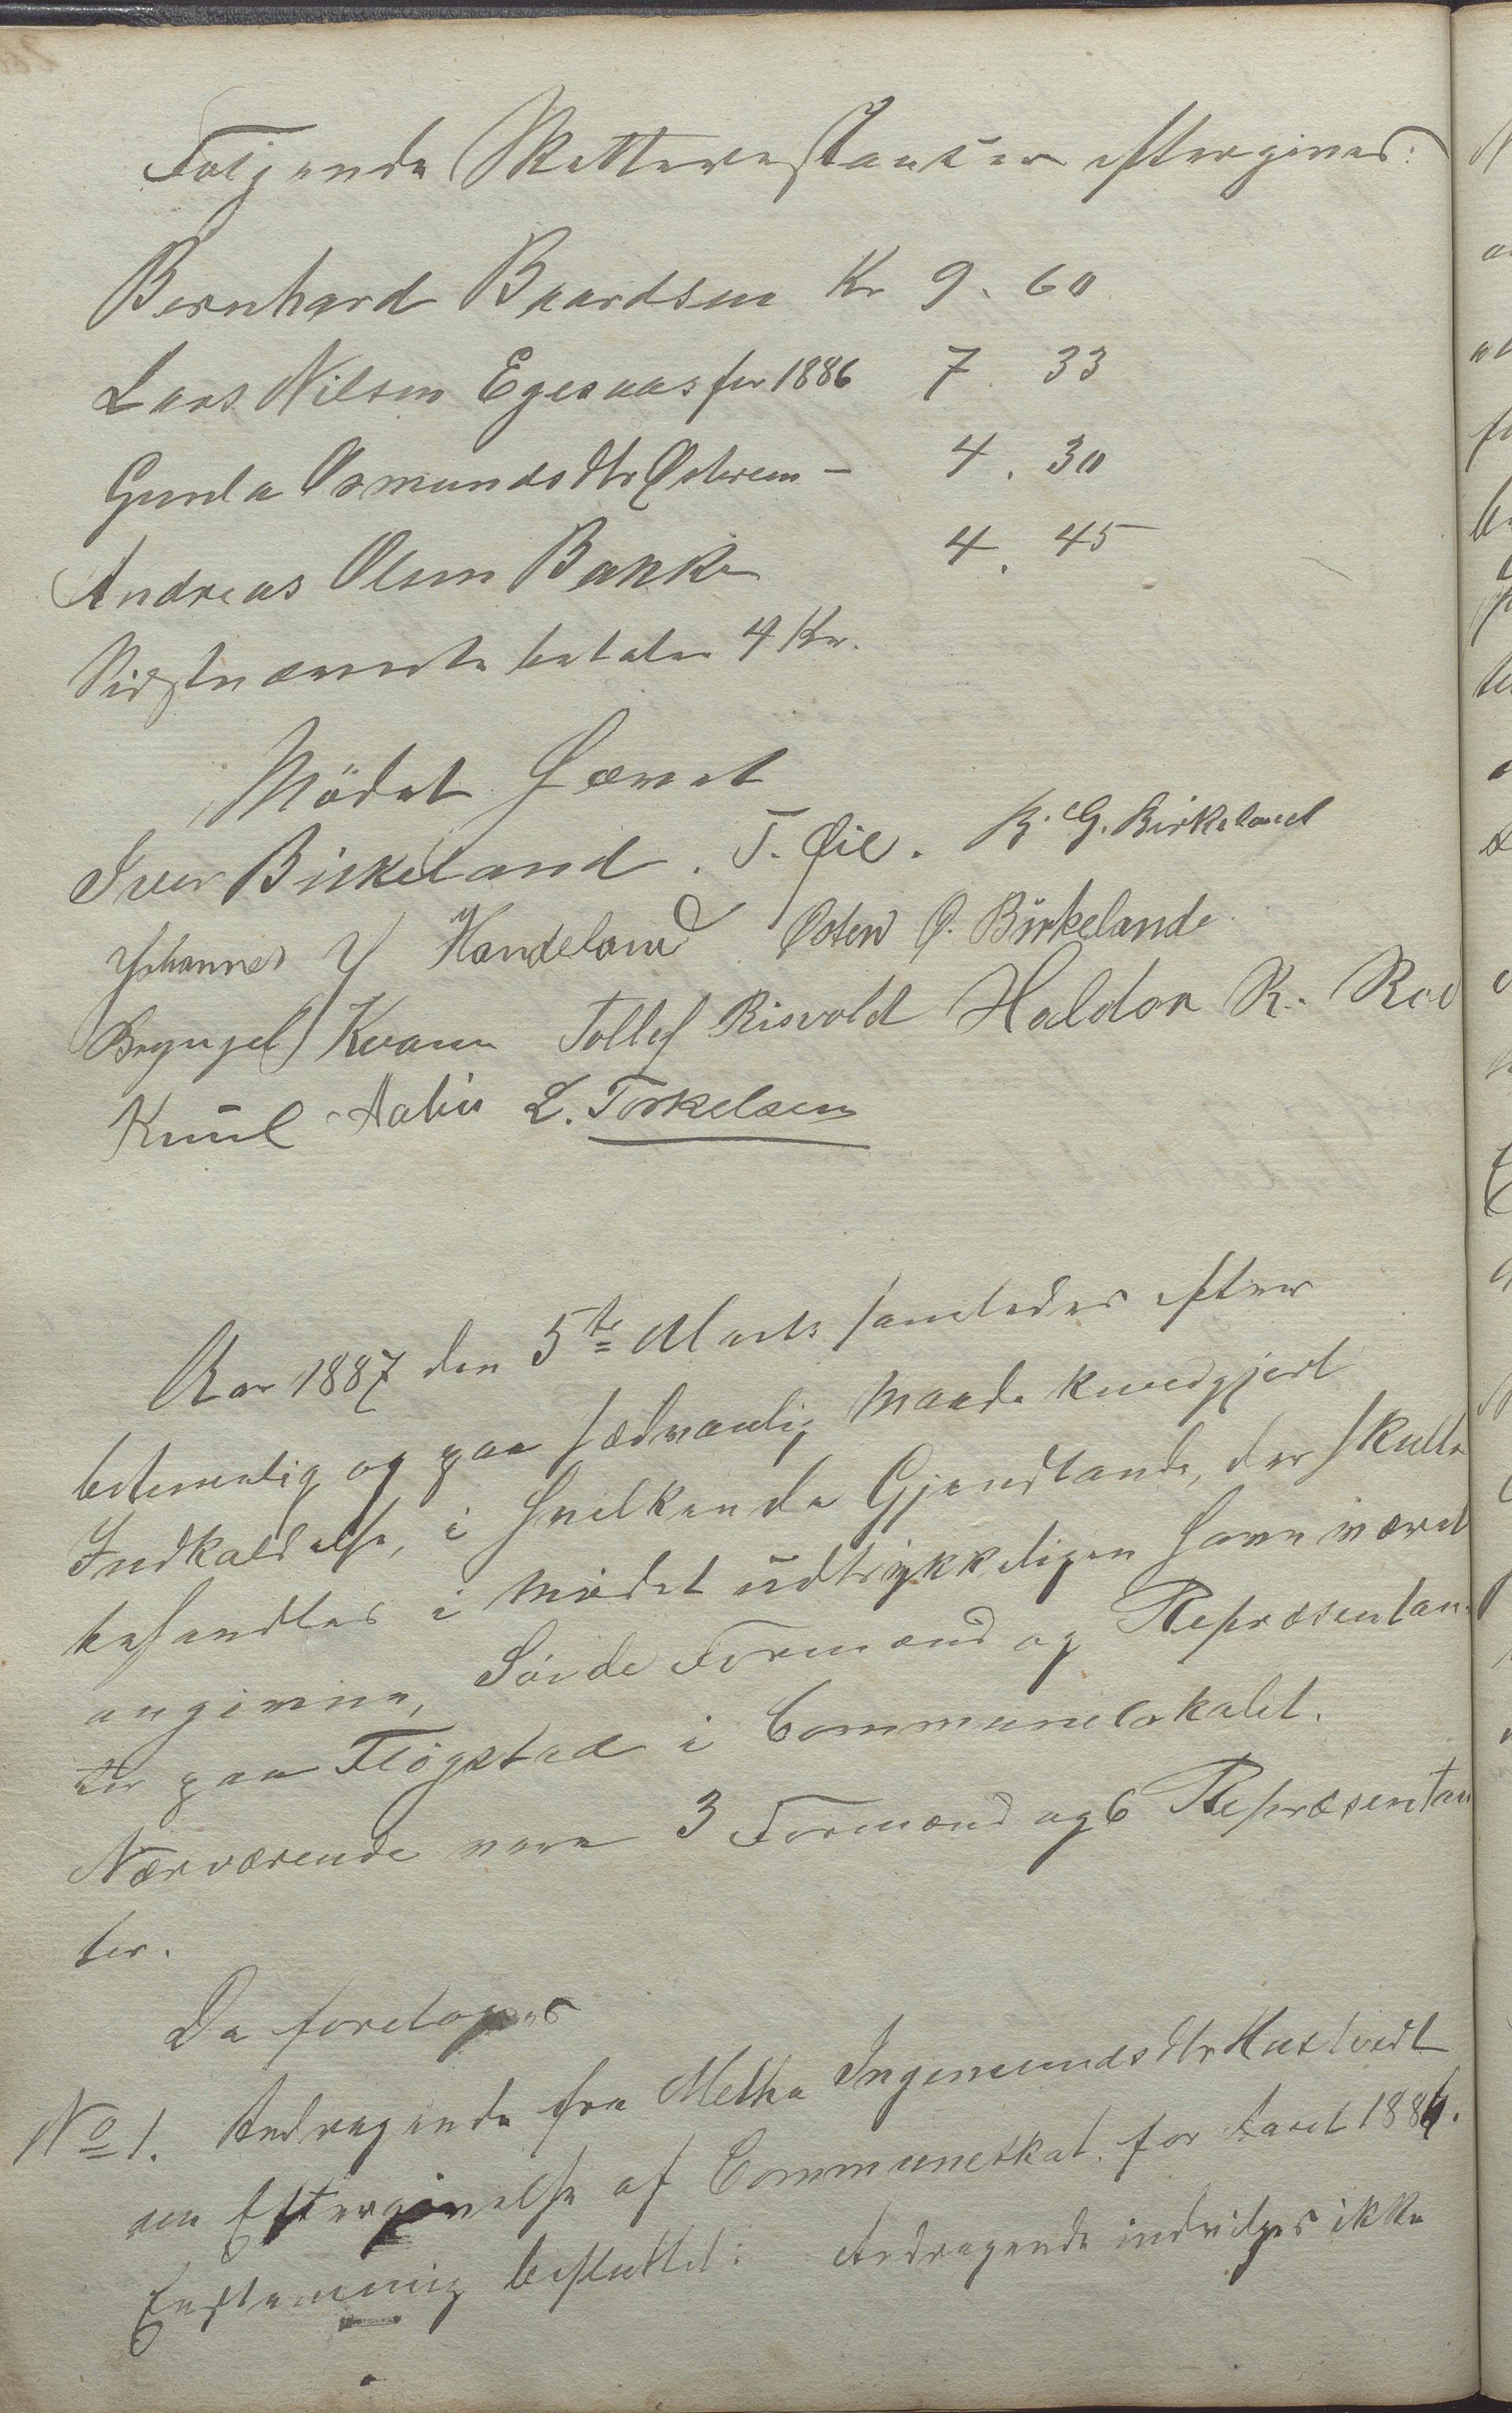 Følgende Skatterestancer eftergives:
Bernhard Baardsen Kr 9. 60
Lars Nilsen Egesaas for 1886 7. 33
Gunla Osmundsdtr Østrem — 4. 30
Andreas Olsen Bakke 4. 45
Sidstnævnte betaler 4 Kr.
Mödet hævet
Iver Birkeland. T. Øie. R. G. Birkeland
Johannes J Handeland Østen O. Birkelande
Brynjel Kvam Tollef Risvold Haldor R. Roe
Knud Aabu L. Torkelsen
Aar 1887 den 5te Marts samledes efter
betimelig og paa sædvanlig Maade kundgjort
Indkaldelse, i hvilken de Gjenstande, der skulle
behandles i Mödet udtrykkeligen have været
angivne, Søvde Formænd og Repræsentan-
ter paa Fløgstad i Communelokalet.
Nærværende vare 3 Formænd og 6 Repræsentan
ter.
Da foretoges
No 1. Andragende fra Metha Ingemundsdtr Hustvedt
om Eftergivelse af Communeskat for Aaret 1886.
Enstemmig besluttet: Andragende indvilges ikke